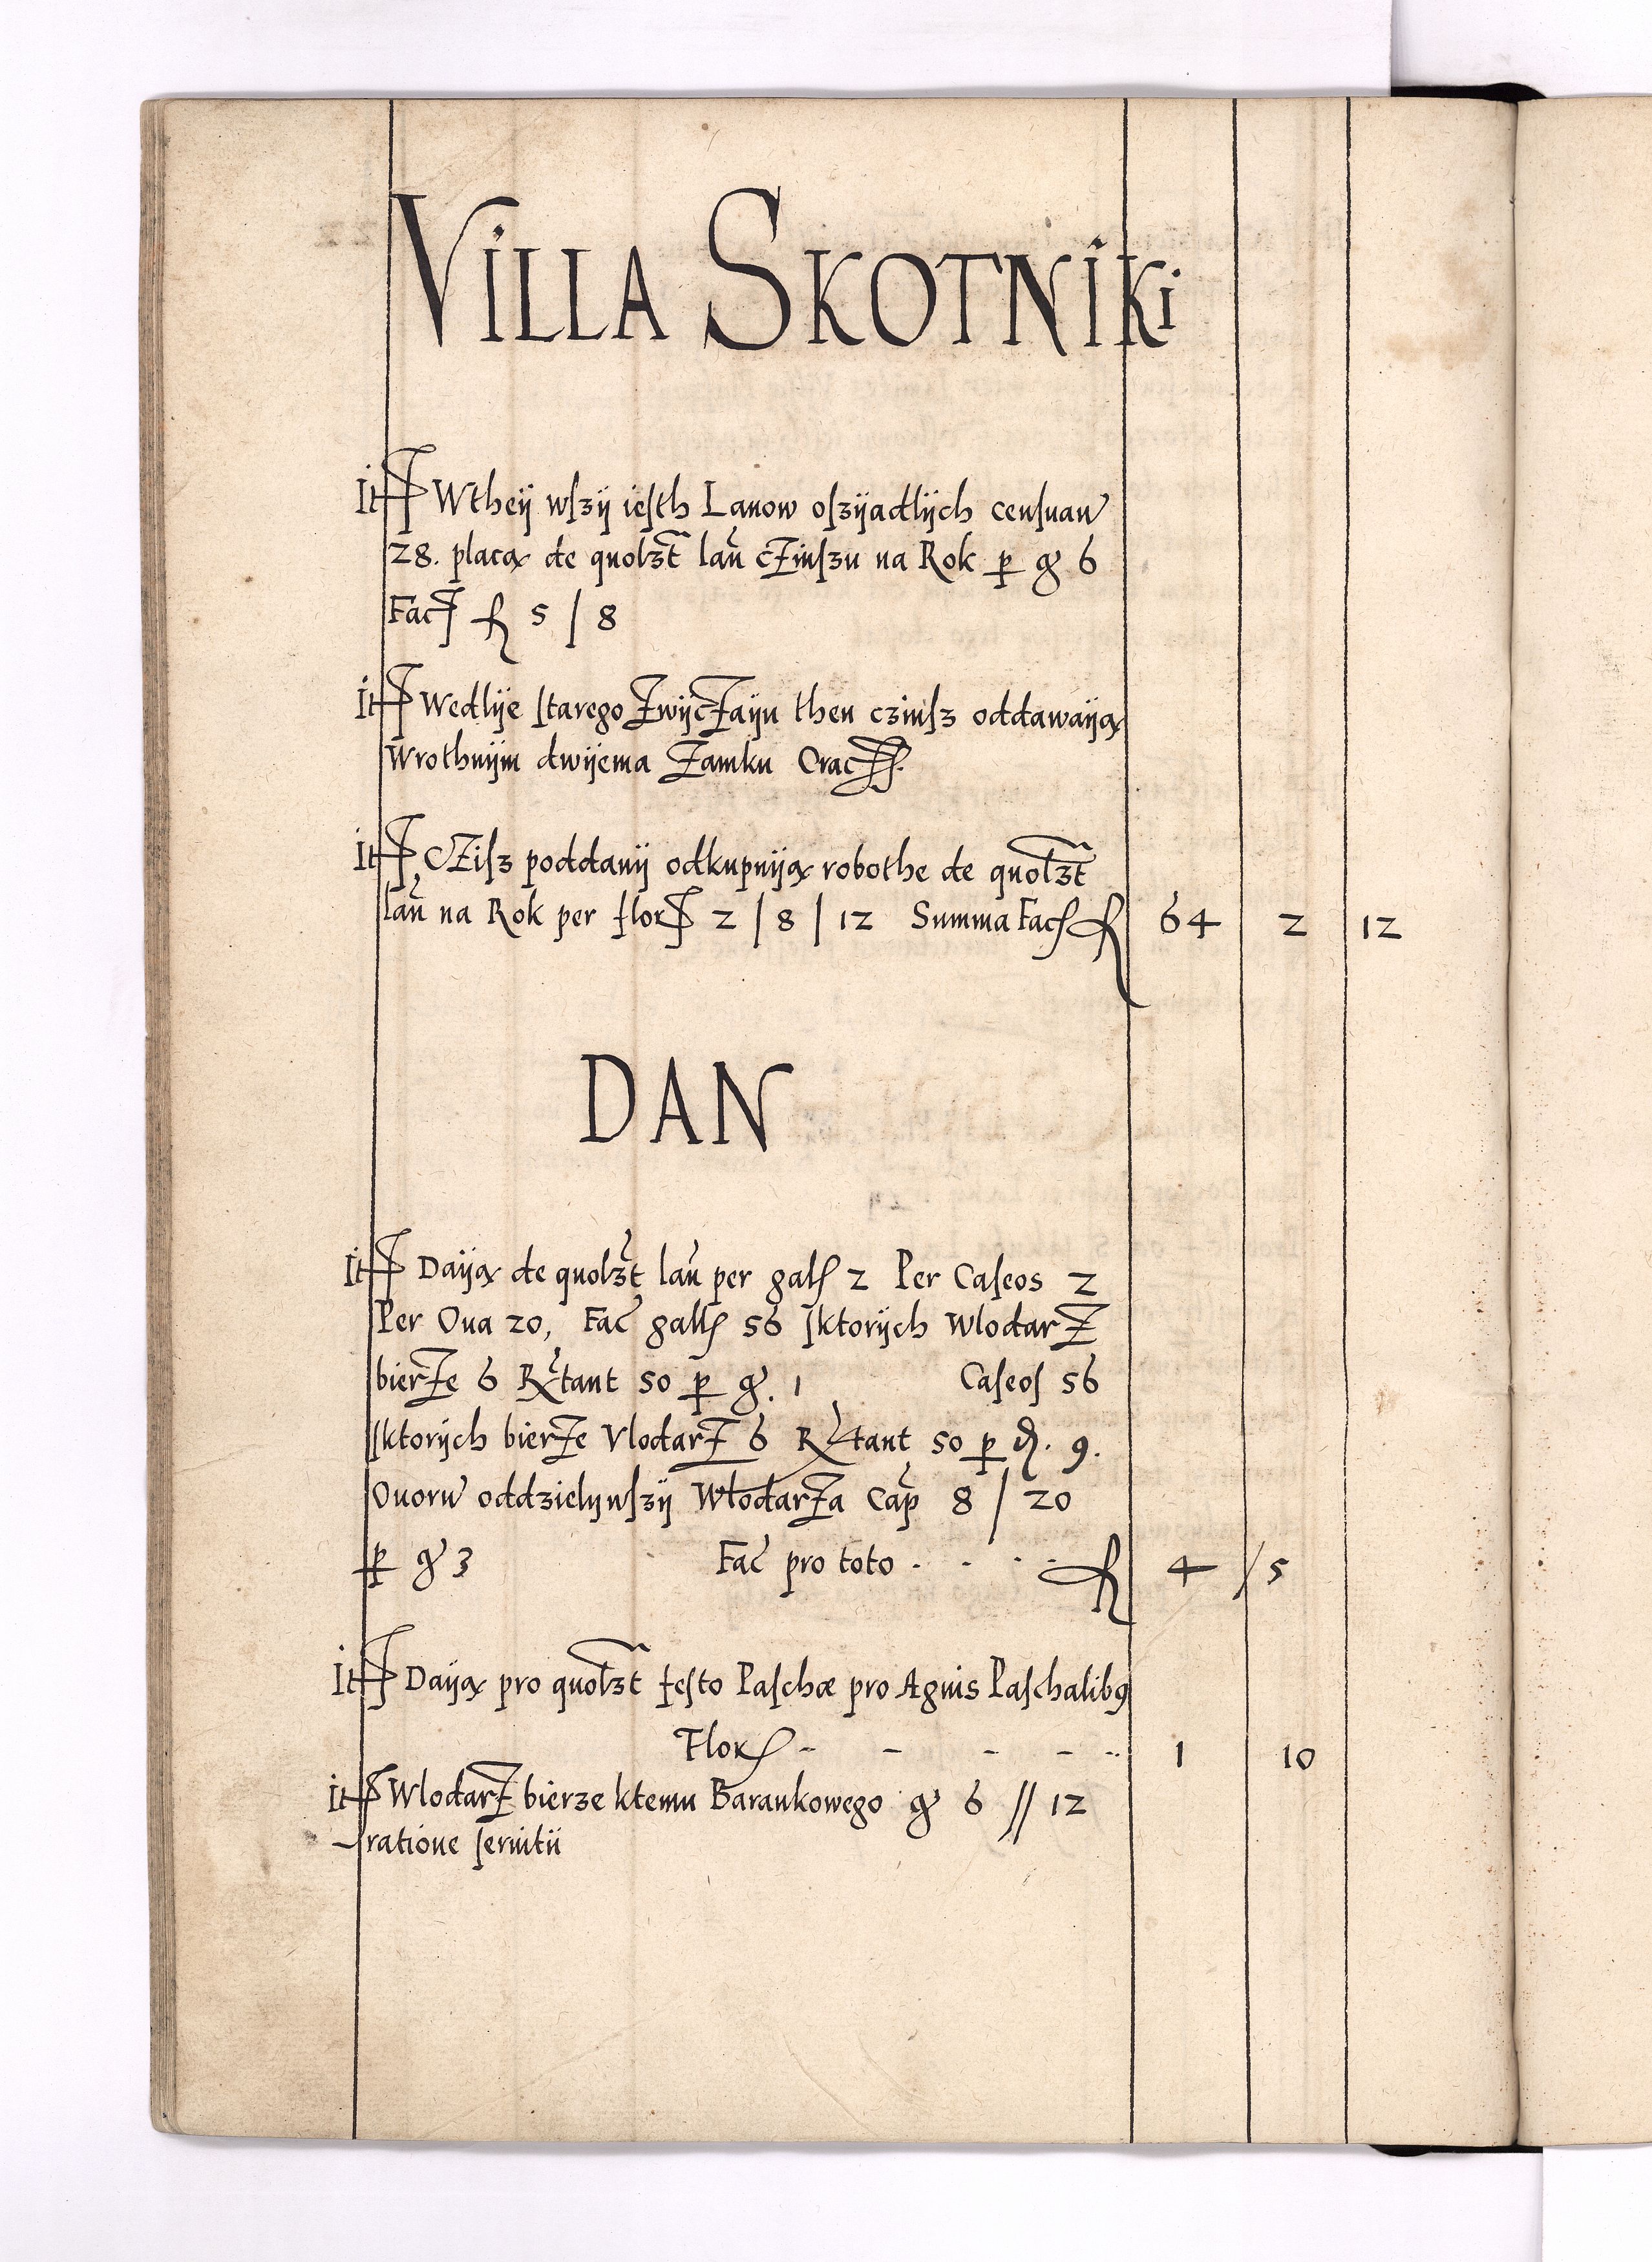 VILLA SKOTNIKi
It Wtheÿ wſzÿ ieſth Lanow oſzÿadlÿch cenſuaw
28. placą de quolzt lan cZinſzu na Rok p g 6
Fac fl 5 / 8
It Wedlÿe ſtarego ZwÿcZaÿu then czinſz oddawaÿą
Wrothnÿm dwÿema Zamku Crac
It CZiſz poddanÿ odkupuÿą robothe de quolzt
lan na Rok per flor 2 / 8 / 12 Summa Fac fl 64 2 12
DAN
It Daÿą de quolzt lan per gal 2 Per Caſeos 2
Per Oua 20, Fac gall 56 ſktorÿch WlodarZ
bierZe 6 Rtant 50 p g. 1 Caſeoſ 56
ſktorÿch bierZe VlodarZ 6 Rtant 50 p d. 9.
Ouorw oddzielÿwſzÿ WlodarZa Cap 8 / 20
p g 3 Fac pro toto . - . - fl 4 / 5
It Daÿą pro quolzt feſto Paſchæ pro Agnis Paſchalib9
Flor - - - - .. 1 10
it WlodarZ bierze ktemu Barankowego g 6 // 12
ratione ſeruitii